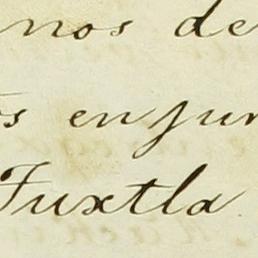 nos de
s en jun
Tuxtla